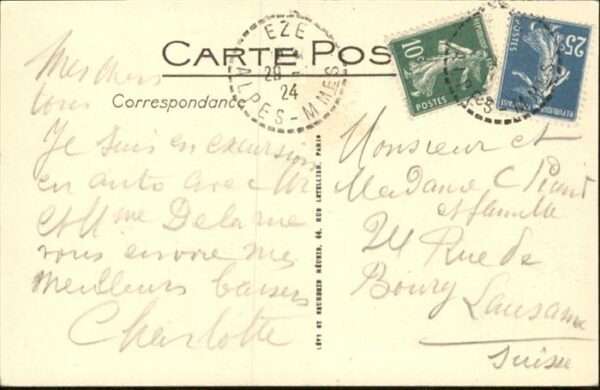 CARTE POS
Correspondance
EZE
28 -
24
ALPES-MMES
10c
POSTES
25c
POSTES
Mes chers
tous
Je suis en excursion
en auto avec Mr
et Mme Delarue
vous envoie mes
meilleurs baisers
Charlotte
LÉVY ET NEURDEIN RÉUNIS, 44, RUE LETELLIER, PARIS
Monsieur et
Madame C
et famille
24 Rue de
Bourg Lausanne
Suisse